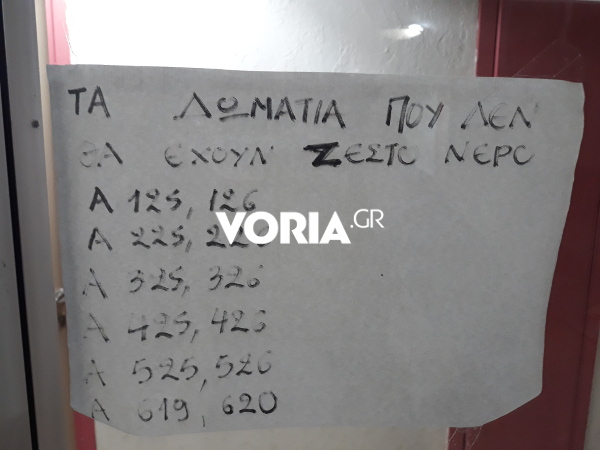 ΤΑ ΔΩΜΑΤΙΑ ΠΟΥ ΔΕΝ
ΘΑ ΕΧΟΥΝ ΖΕΣΤΟ ΝΕΡΟ
Α 125, 126
Α 225, 226
VORIA.GR
Α 325, 326
Α 425, 426
Α 525, 526
Α 619, 620